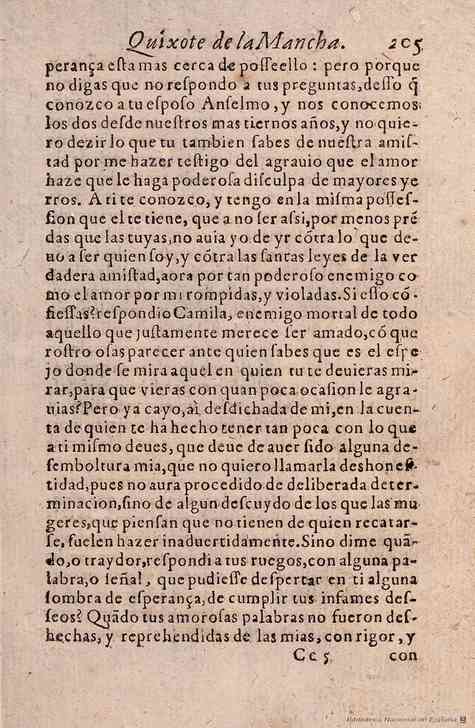 Quixote de la Mancha. 205
perança esta mas cerca de posseello : pero porque
no digas que no respondo a tus preguntas, desso q̃
conozco a tu esposo Anselmo, y nos conocemos
los dos desde nuestros mas tiernos años, y no quie-
ro dezir lo que tu tambien sabes de nuestra amis-
tad por me hazer testigo del agrauio que el amor
haze que le haga poderosa disculpa de mayores ye
rros. A ti te conozco, y tengo en la misma posses-
sion que el te tiene, que a no ser assi, por menos prẽ
das que las tuyas, no auia yo de yr cõtra lo que de-
uo a ser quien soy, y cõtra las santas leyes de la ver
dadera amistad, aora por tan poderoso enemigo co
mo el amor por mi rompidas, y violadas. Si esso cõ-
fiessas? respondio Camila, enemigo mortal de todo
aquello que justamente merece ser amado, cõ que
rostro osas parecer ante quien sabes que es el espe
jo donde se mira aquel en quien tu te deuieras mi-
rar, para que vieras con quan poca ocasion le agra-
uias? Pero ya cayo, ai desdichada de mi, en la cuen-
ta de quien te ha hecho tener tan poca con lo que
a ti mismo deues, que deue de auer sido alguna de-
semboltura mia, que no quiero llamarla deshones-
tidad, pues no aura procedido de deliberada deter-
minacion, sino de algun descuydo de los que las mu
geres, que piensan que no tienen de quien recatar-
se, suelen hazer inaduertidamente. Sino dime quã-
do, o traydor, respondi a tus ruegos, con alguna pa-
labra, o señal, que pudiesse despertar en ti alguna
sombra de esperança, de cumplir tus infames des-
seos? Quãdo tus amorosas palabras no fueron des-
hechas, y reprehendidas de las mias, con rigor, y
Cc 5 con
Biblioteca Nacional de España